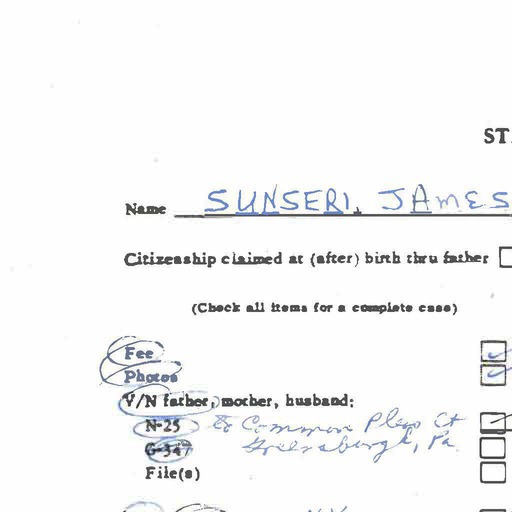 ST
Name SUNSERI, JAMES
Citizenship claimed at (after) birth thru father
(Check all items for a complete case)
Fee
Photos
V/N father, mother, husband:
N-25 to Common Pleas Ct
Greensburgh, Pa.
G-347
File(s)